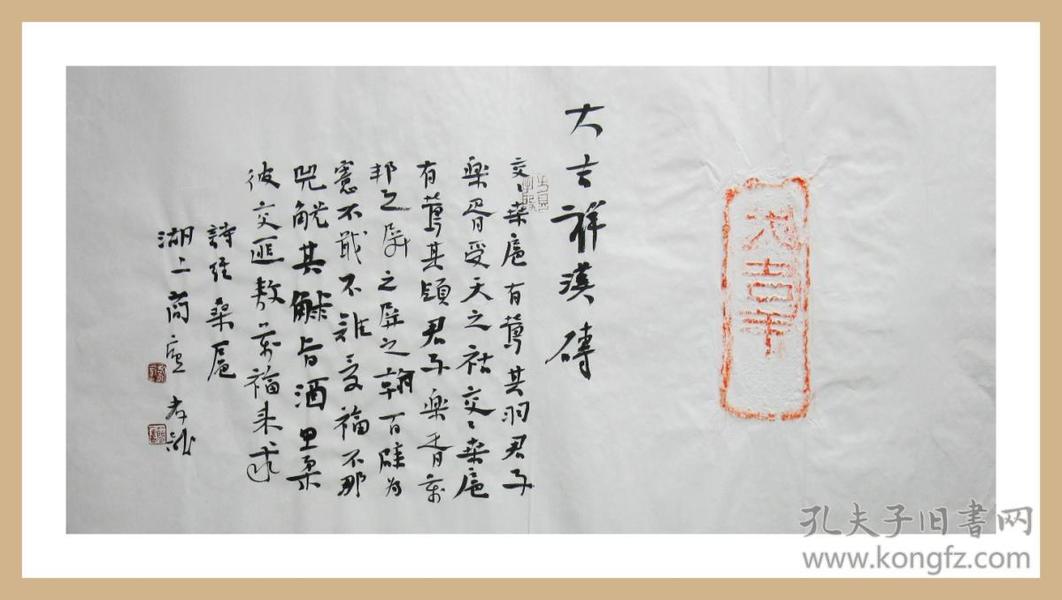 大吉羊
大吉祥漢磚
交〻桑扈有鶯其羽君子
樂胥受天之祜交〻桑扈
有鶯其領君子樂胥萬
邦之屏之屏之翰百辟为
憲不戢不難受福不那
兕觥其觩旨酒思柔
彼交匪敖萬福来求
詩經桑扈
湖上
孔夫子旧書网
www.kongfz.com